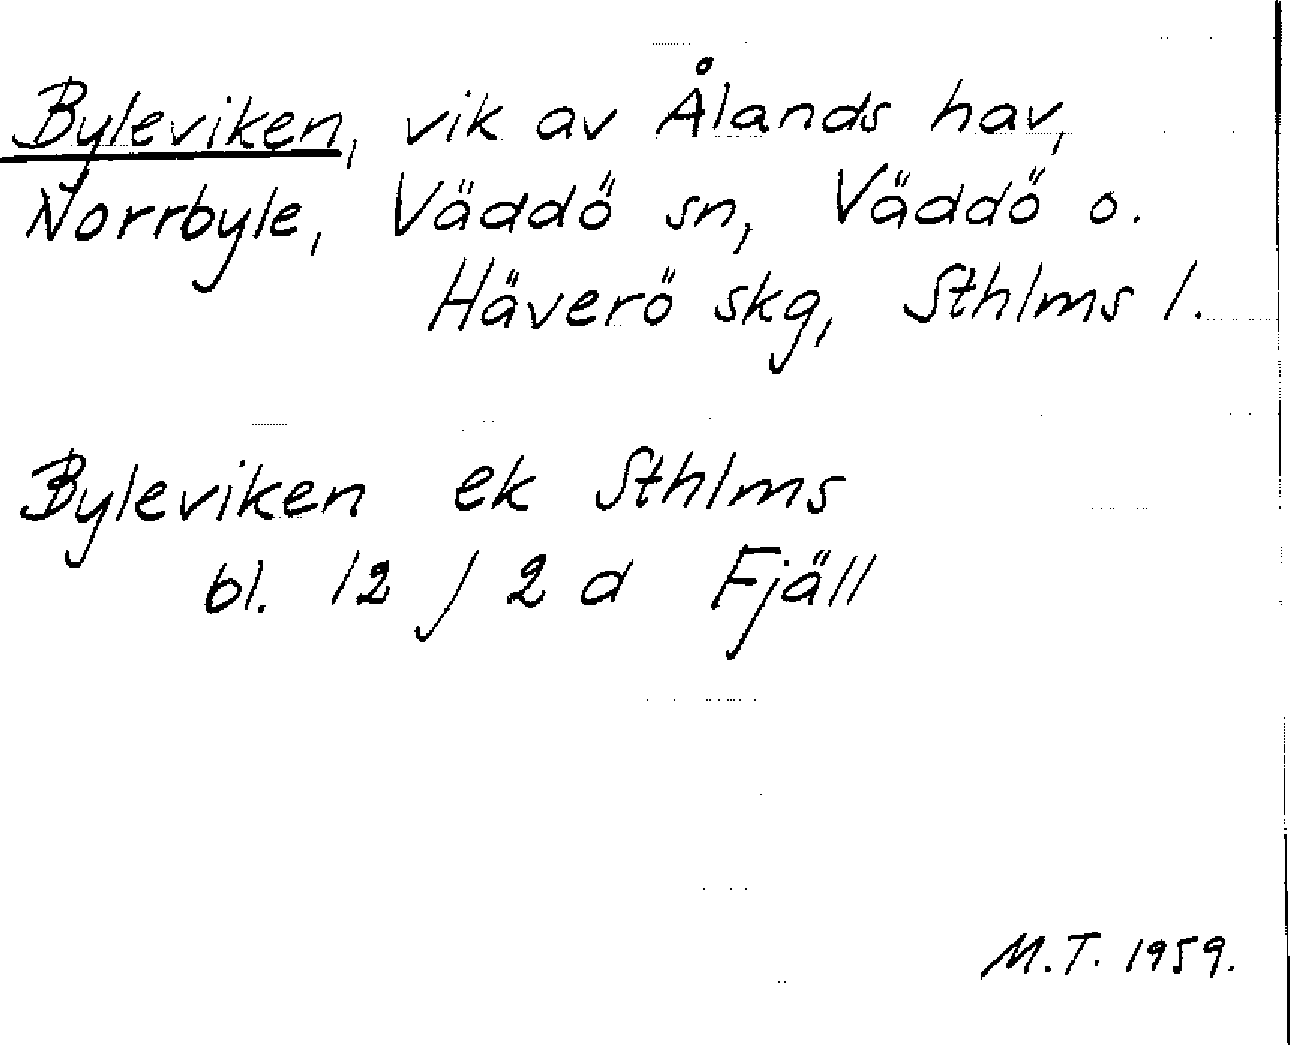 Byleviken, vik av Ålands hav,
Norrbyle, Väddö sn, Väddö o.
Häverö skg, Sthlms l.
Byleviken ek Sthlms
bl. 12 J 2 d Fjäll
M.T. 1959.